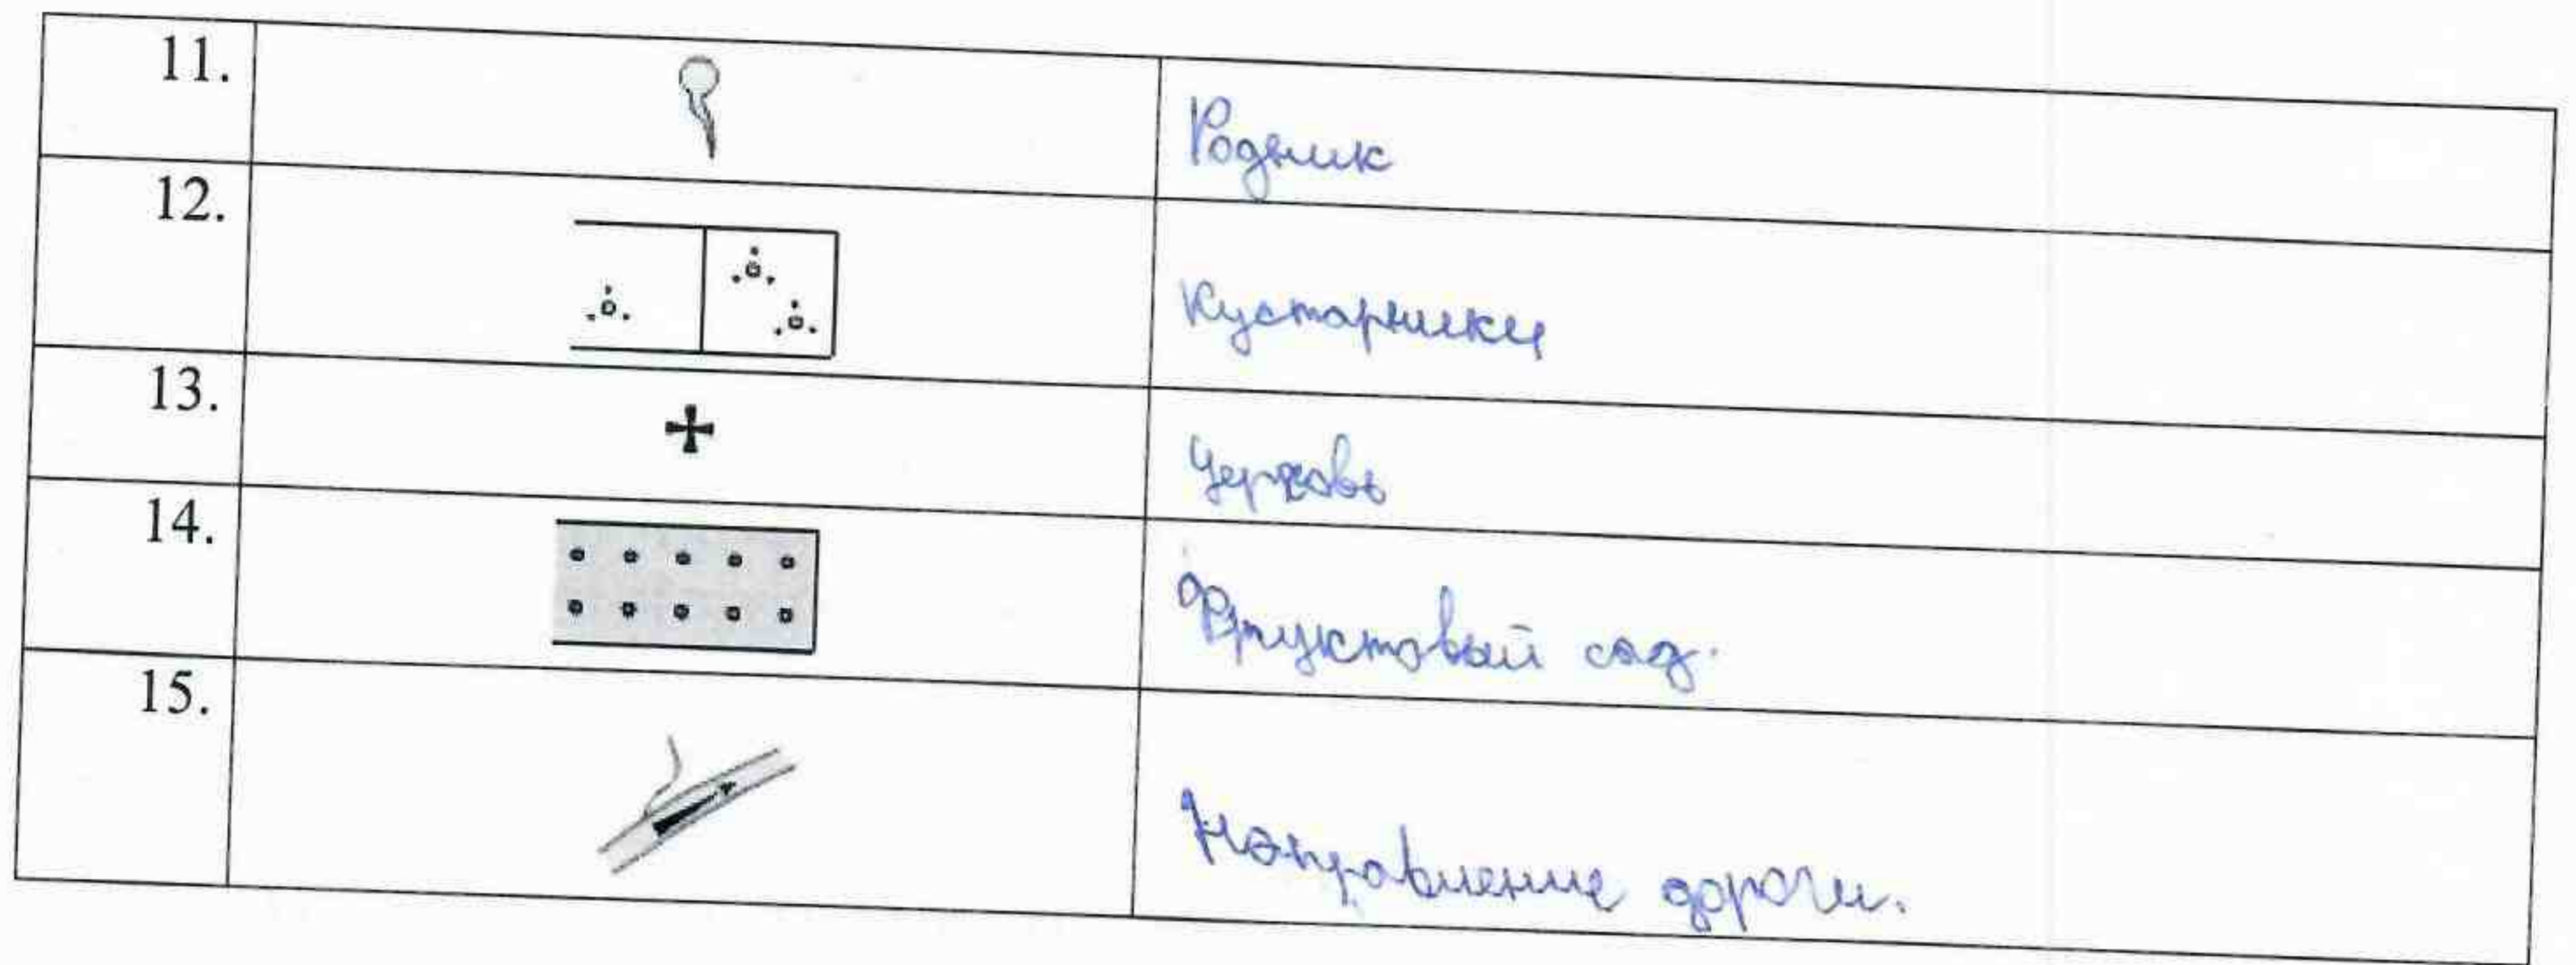 11.
Родник
12.
Кустарники
13.
Церковь
14.
Фруктовый сад.
15.
Направление дороги.